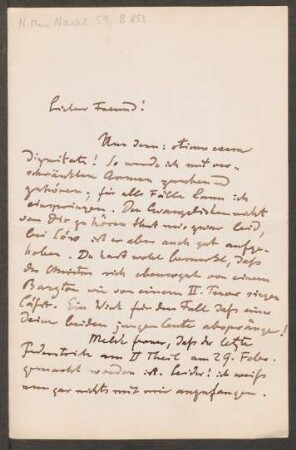 N. Mus. Nachl. 59, B 853
Lieber Freund!
Nun denn: otium cum
dignitate! So werde ich mit ver-
schränkten Armen zusehen und
zuhören; für alle Fälle kann ich
einspringen. Den Evangelisten nicht
von Dir zu hören thut mir zwar leid,
bei Löwe ist er aber auch gut aufge-
hoben. Du hast wohl bemerkt, daß
der Meister sich ebensogut von einem
Baryton wie von einem II. Tenor singen
läßt. Ein Wink für den Fall daß einer
Deiner beiden jungen Leute abspränge!
Melde ferner, daß der letzte
Federstrich am II Theil am 29. Febr.
gemacht worden ist. Leider! ich weiß
nun gar nichts mit mir anzufangen.